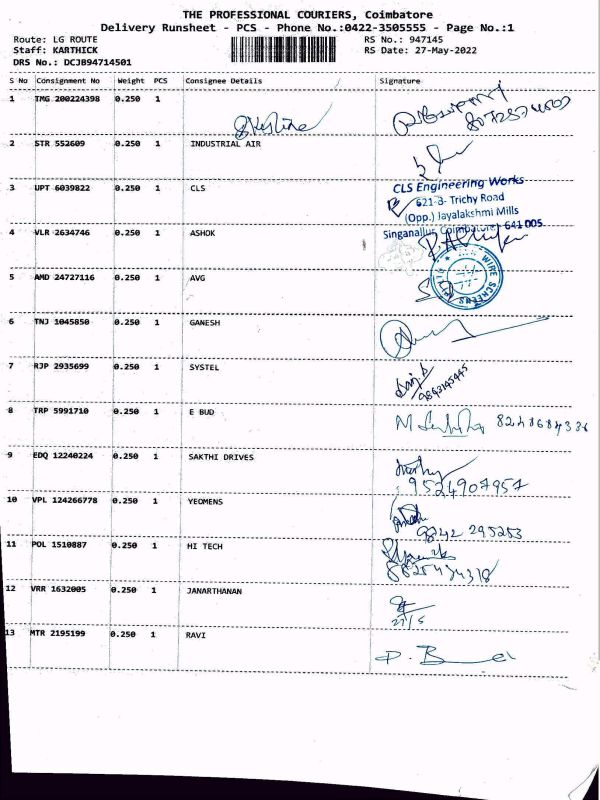 THE PROFESSIONAL COURIERS, Coimbatore
Delivery Runsheet - PCS - Phone No.:0422-3505555 - Page No.:1
Route: LG ROUTE RS No.: 947145
Staff: KARTHICK RS Date: 27-May-2022
DRS No.: DCJB94714501
S No Consignment No Weight PCS Consignee Details Signature
1 IMG 200224398 0.250 1
2 STR 552609 0.250 1 INDUSTRIAL AIR
3 UPT 6039822 0.250 1 CLS
CLS Engineering Works
621-B- Trichy Road
(Opp.) Jayalakshmi Mills
Singanallur, Coimbatore - 641 005
4 VLR 2634746 0.250 1 ASHOK
5 AMD 24727116 0.250 1 AVG
WIRE SCREENS
6 TNJ 1045850 0.250 1 GANESH
7 RJP 2935699 0.250 1 SYSTEL
8 TRP 5991710 0.250 1 E BUD
9 EDQ 12240224 0.250 1 SAKTHI DRIVES
9524907957
10 VPL 124266778 0.250 1 YEOMENS
9842 295253
11 POL 1510887 0.250 1 HI TECH
12 VRR 1632005 0.250 1 JANARTHANAN
27/5
13 MTR 2195199 0.250 1 RAVI